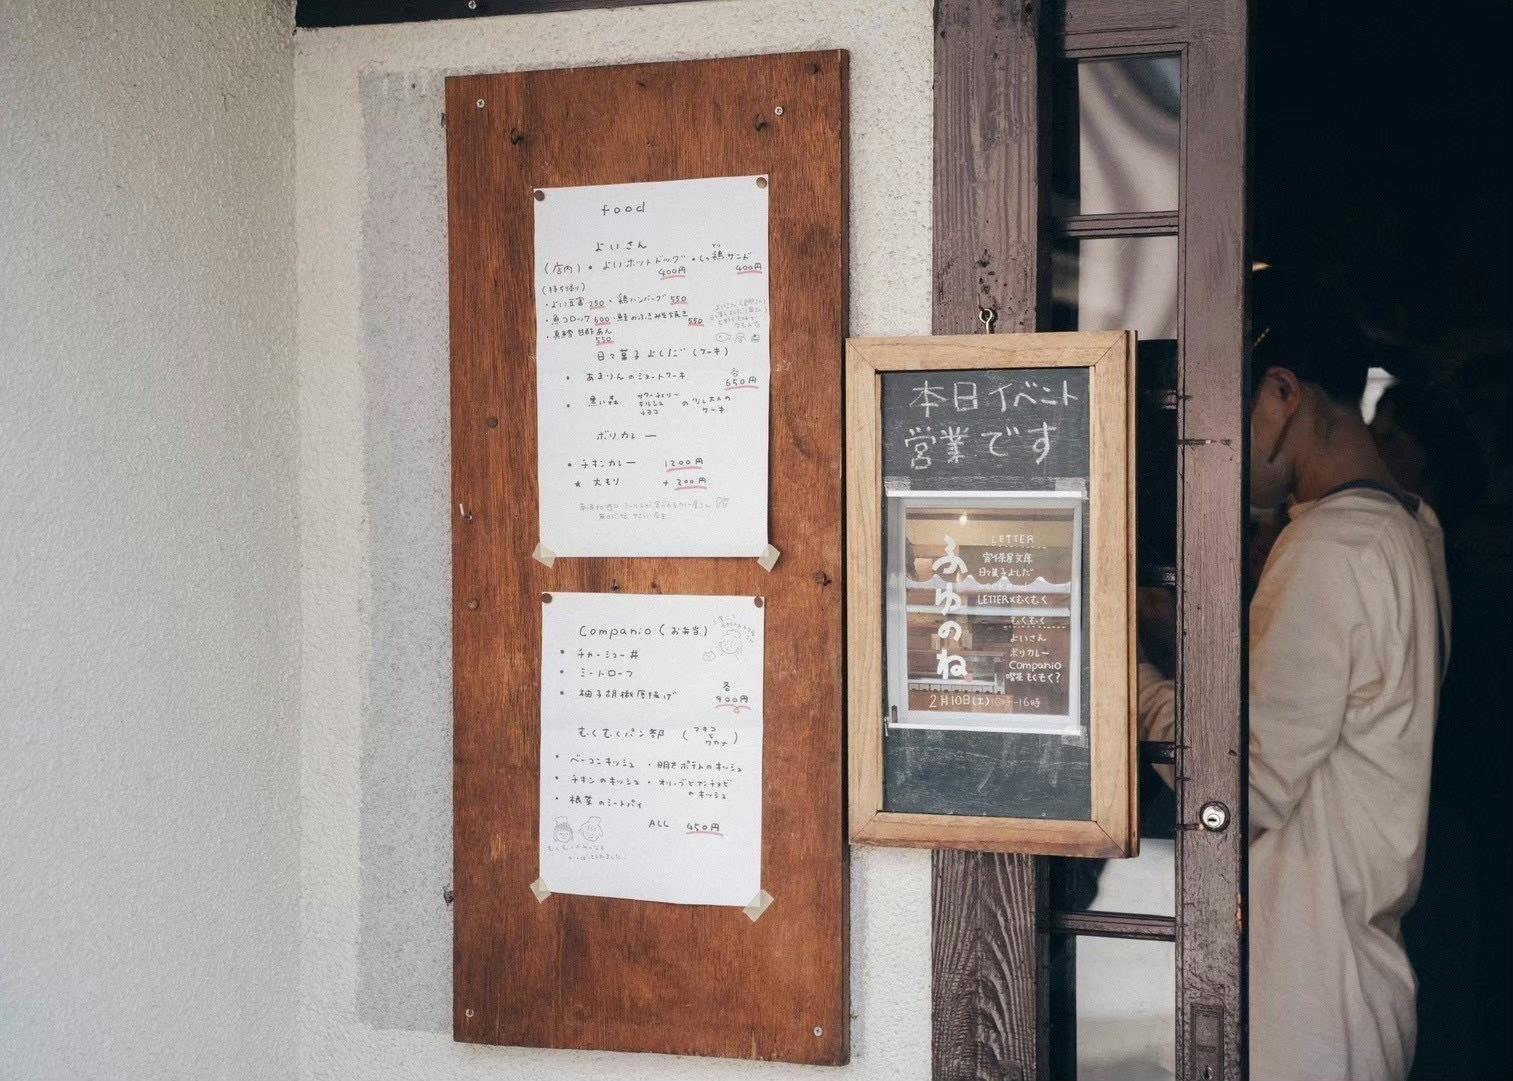 food
よいさん
(店内)・よいホットドッグ ・しっとり鶏サンド
400円 400円
(持ち帰り)
・よい豆富 250 ・鶏ハンバーグ 550
・魚コロッケ 600 ・鮭のふきみそ焼き 550
・真鱈甘酢あん
550
日々菓子よしだ(ケーキ)
・あまりんのショートケーキ 各
650円
・黒い森 サワーチェリー
キルシュ
チョコ の少し大人の
ケーキ
ポリカレー
・チキンカレー 1200円
★大もり +200円
Companio(お弁当)
・チャーシュー丼
・ミートローフ
・柚子胡椒唐揚げ 各
900円
むくむくパン部
・ベーコンキッシュ ・明太ポテトのキッシュ
・チキンのキッシュ ・オリーブとアンチョビ
のキッシュ
・根菜のミートパイ
ALL 450円
本日イベント
営業です
ふゆのね
LETTER
日々菓子よしだ
LETTER×むくむく
むくむく
よいさん
ポリカレー
Companio
喫茶もくもく?
2月10日(土)10時-16時